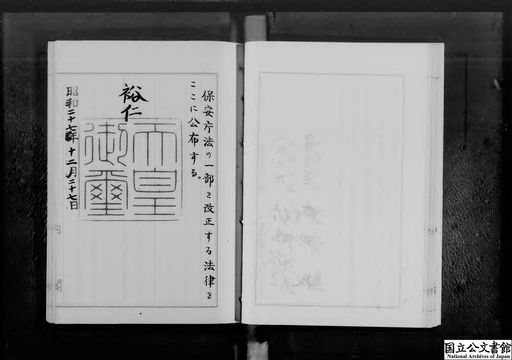 保安庁法の一部を改正する法律を
ここに公布する。
裕仁
天皇
御璽
昭和二十七年十二月二十七日
国立公文書館
National Archives of Japan